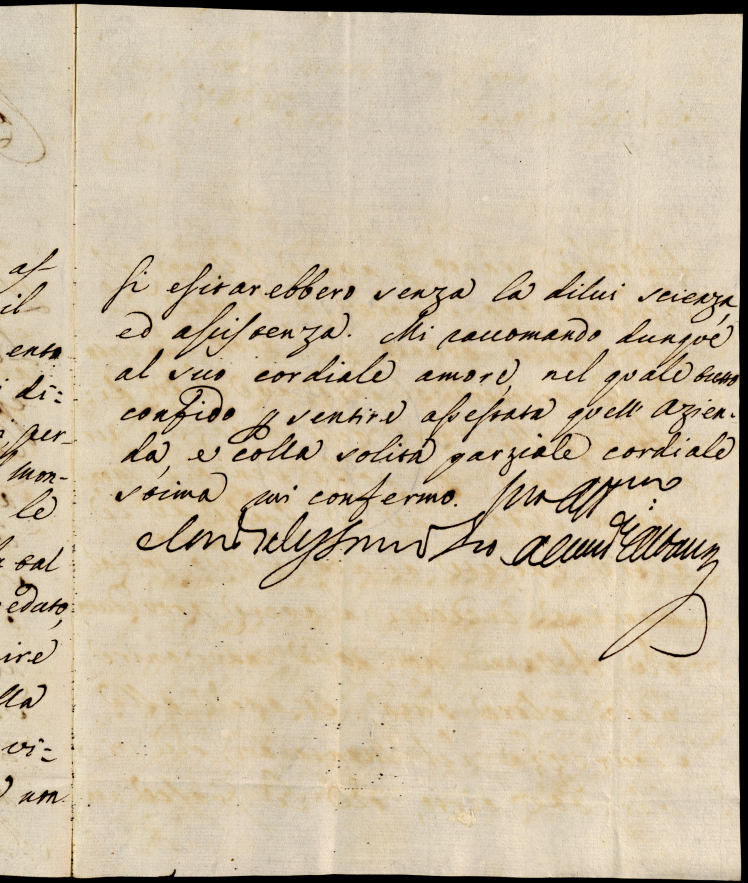 as-
il
ento
di:
per-
mon-
le
sal
edato,
ire
lla
vi:
um
si esitarebbero senza la dilui scienza,
ed assistenza. Mi raccomando dunqué
al suo cordiale amore, nel quale tutto
confido p sentire assestata quell'Azien-
da, e colla solita parziale cordiale
stima mi confermo. suo aff.mo
Zio